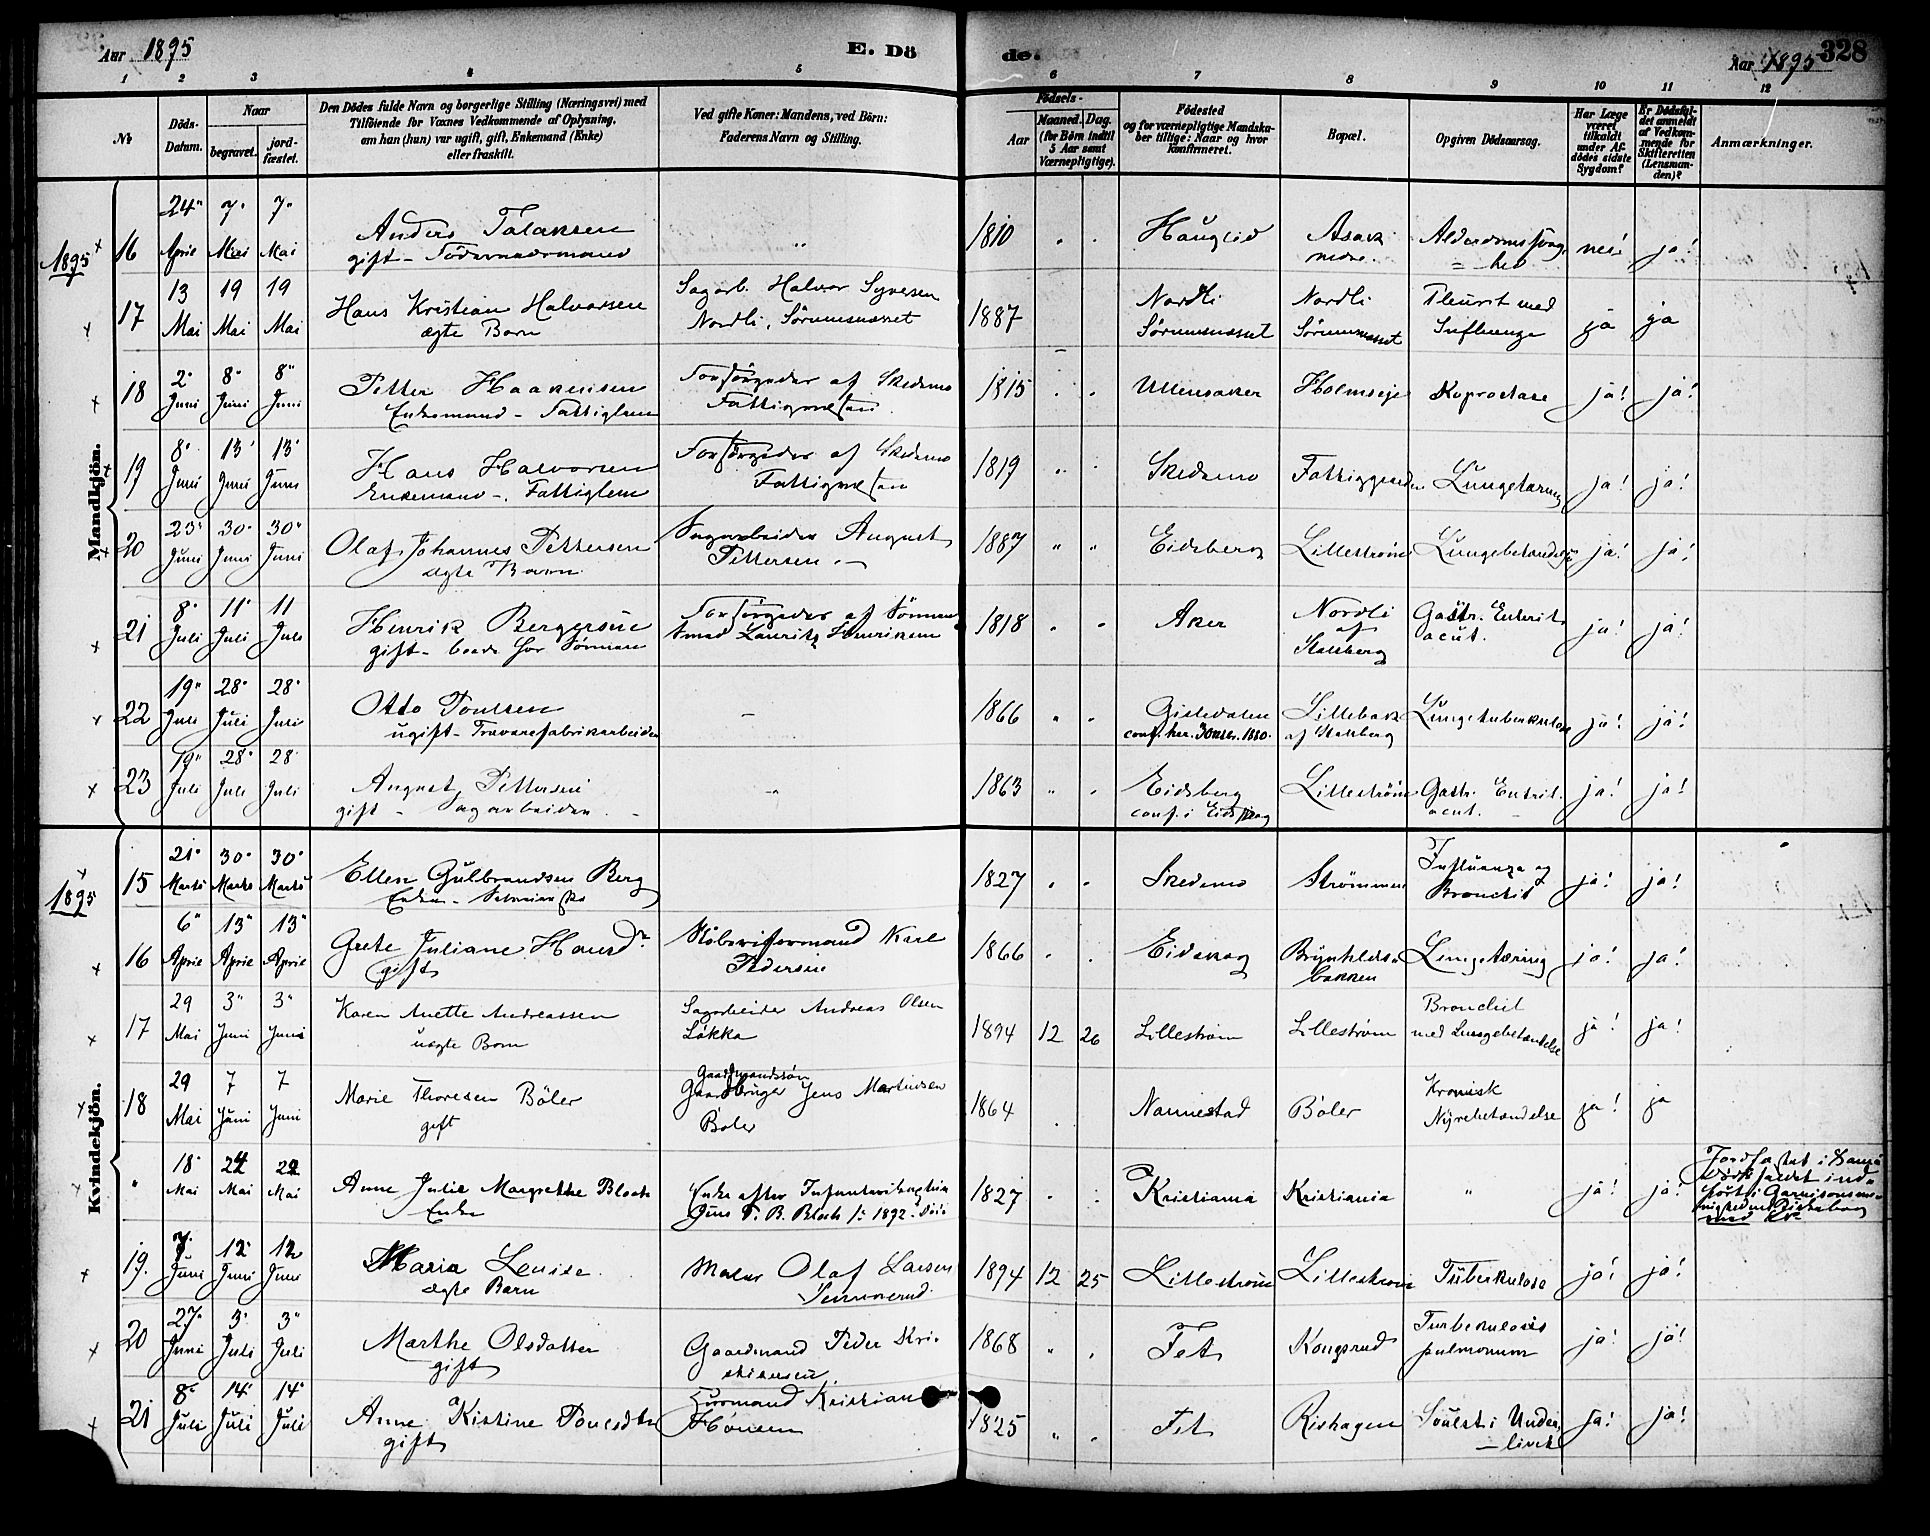 Aar 1895
E. Dö
de.
Aar 1895
328
1 2 3 4 5 6 7 8 9 10 11 12
№
Döds-
Datum.
Naar
begravet.
jord-
fæstet.
Den Dödes fulde Navn og borgerlige Stilling (Næringsvei) med
Tilföiende for Voxnes Vedkommende af Oplysning,
om han (hun) var ugift, gift, Enkemand (Enke)
eller fraskilt.
Ved gifte Koner: Mandens, ved Börn:
Faderens Navn og Stilling.
Födsels-
Aar
Maaned. Dag.
(for Börn indtil
5 Aar samt
Værnepligtige).
Födested
og for værnepligtige Mandska-
ber tillige: Naar og hvor
konfirmeret.
Bopæl.
Opgiven Dödsaarsag.
Har Læge
været
tilkaldt
under Af-
dödes sidste
Sygdom?
Er Dödsfal-
det anmeldt
af Vedkom-
mende for
Skifteretten
(Lensman-
den)?
Anmærkninger.
Mandkjön.
1895
16 24 April 7 Mai 7 Mai
Anders
gift -
1810 Hauglid Asak nedre. Alderdomssvag-
hed nei! ja!
17 13 Mai 19 Mai 19 Mai
Hans Kristian Halvorsen
ægte Barn
Sagarb. Halvor Syversen
Nordli, Sørumsnæsset
1887 Nordli
Sørumsnæsset
Nordli
Sørumsnæsset
Pleurit med
Influenza ja ja
18 2 Juni 8 Juni 8 Juni
Petter Haakensen
Enkemand - Fattiglem
Forsörgedes af Skedsmo
Fattigvæsen
1815 Ullensaker Holmseje Koprostase ja! ja!
19 8 Juni 13 Juni 13 Juni
Hans Halvorsen
Enkemand -, Fattiglem
Forsörgedes af Skedsmo
Fattigvæsen
1819 Skedsmo Fattiggaarden Lungetæring ja! ja!
20 23 Juni 30 Juni 30 Juni
Olaf Johannes Pettersen
ægte Barn
Sagarbeider August
Pettersen.
1887 Eidsberg Lillestrøm Lungebetændelse ja! ja!
21 8 Juli 11 Juli 11 Juli
Henrik Bergersen
gift - boede hos Sønnen
Forsörgedes af Sønnen
Smed Lauritz Henriksen
1818 Aker Nordli
af
Stalsberg
Gastr. Enterit
acut. ja! ja!
22 19 Juli 28 Juli 28 Juli
Otto Poulsen
ugift - Trævarefabrikarbeider
1866 Gistedalen
conf. her. 1880.
Lillebak
af Stalsberg
Lungetuberkulose ja! ja!
23 19 Juli 28 Juli 28 Juli
August Pettersen
gift - Sagarbeider
1863 Eidsberg
conf. i Eidsberg
Lillestrøm Gastr. Enterit.
acut. ja! ja!
Kvindekjön.
1895
15 21 Marts 30 Marts 30 Marts
Ellen Gulbrandsen Berg
Enke -
1827 Skedsmo Strømmen Influenza og
Bronchit ja! ja!
16 6 April 13 April 13 April
Grete Juliane Hansdr
gift
Støberiformand Karl
Pedersen
1866 Eidskog Brynhilds-
bakken Lungetæring ja! ja!
17 29 Mai 3 Juni 3 Juni
Karen Anette Andreassen
uægte Barn
Sagarbeider Andreas Olsen
Løkka
1894 12 26 Lillestrøm Lillestrøm Bronchit
med Lungebetændelse ja! ja!
18 29 Mai 7 Juni 7 Juni
Marie Thoresen Bøler
gift
Gaardmandssøn
Gaardbruger Jens Martinsen
Bøler
1864 Nannestad Bøler Kronisk
Nyrebetændelse ja! ja
" 18 Mai 24 Mai 24 Mai
Anne Julie Margrethe Bloch
Enke
Enke efter Infanterikaptein
Jens P. B. Bloch 1892
1827 Kristiania Kristiania " ja! ja!
Jordfæstet i
Dödsfaldet ind-
fört i Garnisonsme-
19. 7 Juni 12 Juni 12 Juni
Maria Lovise
ægte Barn
Maler Olaf Larsen
1894 12 25 Lillestrøm Lillestrøm Tuberkulose ja! ja!
20 27 Juni 3 Juli 3 Juli
Marthe Olsdatter
gift
Gaardmand Peder Kri-
stiansen
1868 Fet Kongsrud Tuberkulosis
pulmonum ja! ja!
21 8 Juli 14 Juli 14 Juli
Anne Kistine Poulsdtr
gift
Kristian
Hansen
1825 Fet Rishagen Svulst i Under-
livet ja! ja!